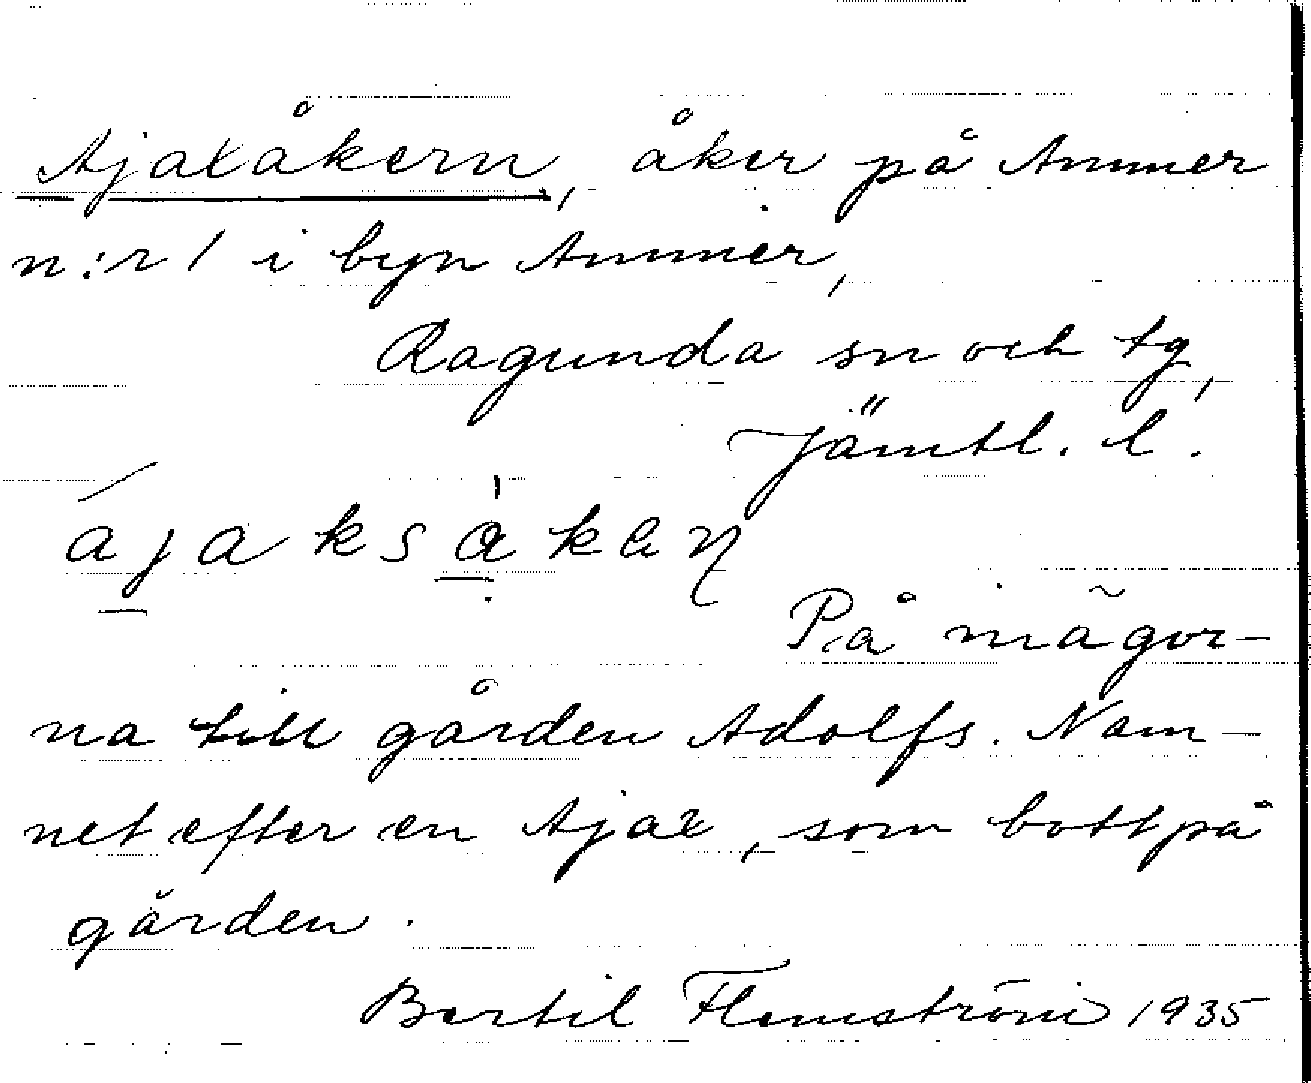 Ajaxåkern, åker på Ammer
n:r 1 i byn Ammer,
Ragunda sn och tg,
Jämtl. l.
På mågor-
na till gården Adolfs. Nam-
net efter en Ajax, som bott på
gården.
Bertil Flemström 1935